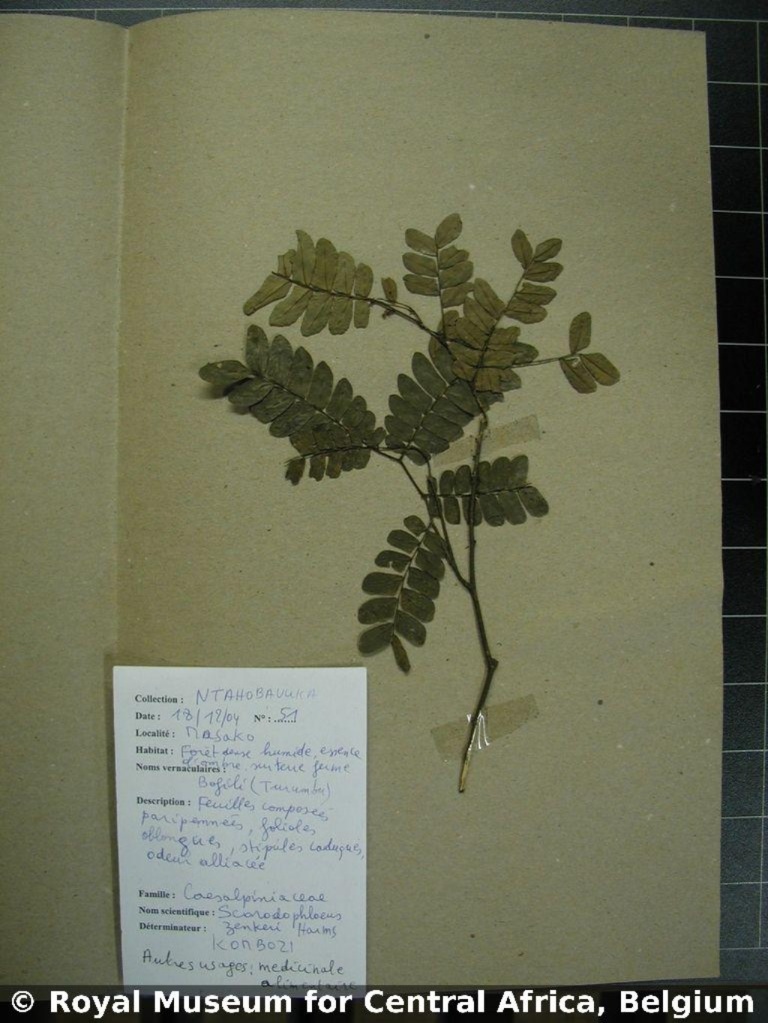 Collection : NTAHOBAVUKA
Date : 18/12/04 N° : 51
Localité : Masako
Habitat : Forêt dense humide, essence
d'ombre, sur terre ferme
Noms vernaculaires :
Bofili (Turumbu)
Description : Feuilles composées
paripennées, folioles
oblongues, stipules caduques,
odeur alliacée
Famille : Caesalpiniaceae
Nom scientifique : Scorodophloeus
Déterminateur : zenkeri Harms
KOMBOZI
Autres usages : médicinale
alimentaire
© Royal Museum for Central Africa, Belgium